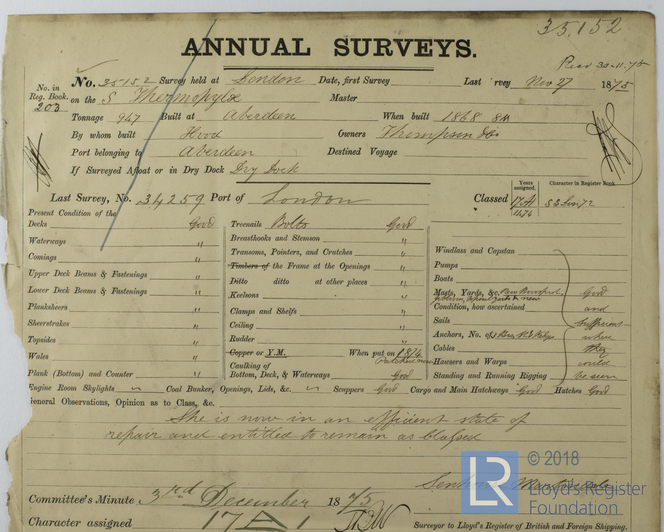 35,152
ANNUAL SURVEYS.
Read 30-11-75
No. in Reg. Book. 203
No. 35152 Survey held at London Date, first Survey Last rvey Nov 27 1875
on the S Thermopylæ Master
Tonnage 947 Built at Aberdeen When built 1868 8m
By whom built Hood Owners Thompson & Co
Port belonging to Aberdeen Destined Voyage
If Surveyed Afloat or in Dry Dock Dry Dock
Last Survey, No. 34259 Port of London
Classed Years assigned. 17A1 1876 Character in Register Book. SS Lon 72
Present Condition of the
Decks Good
Waterways "
Comings "
Upper Deck Beams & Fastenings "
Lower Deck Beams & Fastenings "
Planksheers "
Sheerstrakes "
Topsides "
Wales "
Plank (Bottom) and Counter "
Treenails Bolts Good
Breasthooks and Stemson "
Transoms, Pointers, and Crutches "
Timbers of the Frame at the Openings "
Ditto ditto at other places "
Keelsons "
Clamps and Shelfs "
Ceiling "
Rudder "
Copper or Y.M. When put on 1874
Caulking of Bottom, Deck, & Waterways Good
Windlass and Capstan
Pumps
Boats
Masts, Yards, &c.
Condition, how ascertained
Sails
Anchors, No. of
Cables
Hawsers and Warps
Standing and Running Rigging
Good
and
sufficient
where
they
could
be seen
Engine Room Skylights " Coal Bunker, Openings, Lids, &c. " Scuppers Good Cargo and Main Hatchways Good Hatches Good
General Observations, Opinion as to Class, &c.
She is now in an efficient state of
repair and entitled to remain as classed
Committee's Minute 3rd December 1875
Character assigned 17A1
Surveyor to Lloyd's Register of British and Foreign Shipping.
LR
© 2018
Lloyd's Register
Foundation